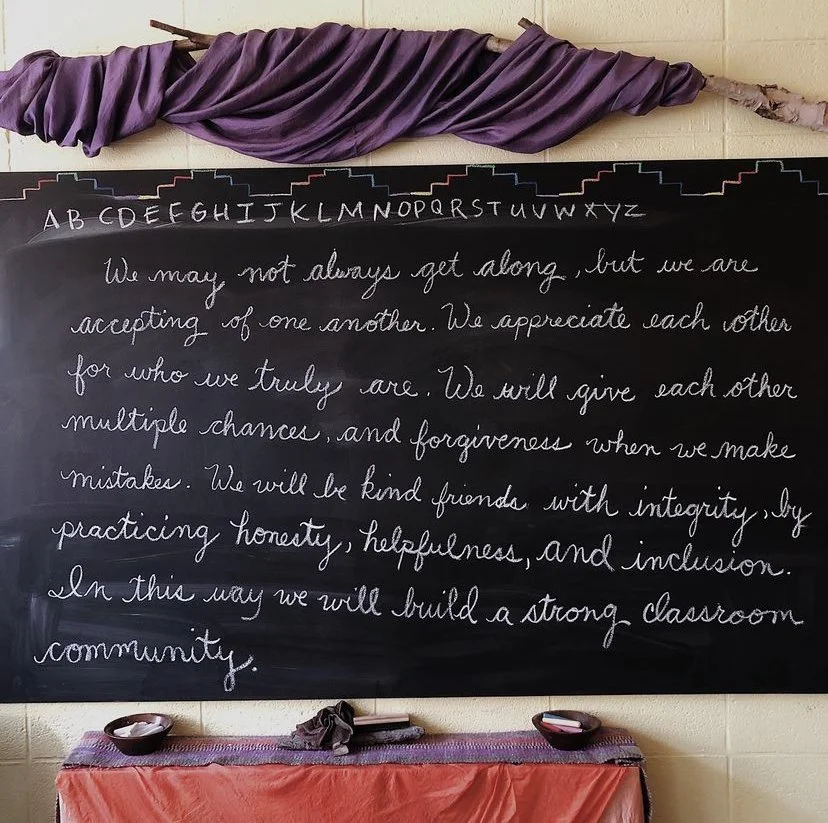 A B C D E F G H I J K L M N O P Q R S T U V W X Y Z
We may not always get along, but we are
accepting of one another. We appreciate each other
for who we truly are. We will give each other
multiple chances, and forgiveness when we make
mistakes. We will be kind friends with integrity, by
practicing honesty, helpfulness, and inclusion.
In this way we will build a strong classroom
community.